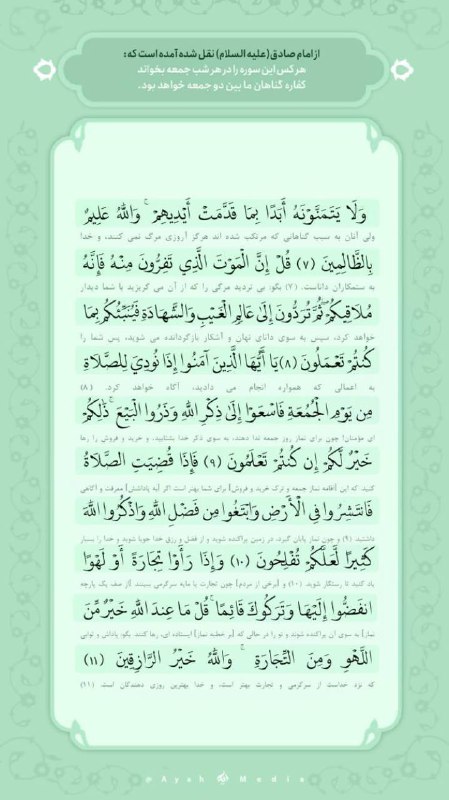 از امام صادق (علیه السلام) نقل شده آمده است که:
هر کس این سوره را در هر شب جمعه بخواند
کفاره گناهان ما بین دو جمعه خواهد بود.
وَلَا يَتَمَنَّوْنَهُ أَبَدًا بِمَا قَدَّمَتْ أَيْدِيهِمْ ۚ وَاللَّهُ عَلِيمٌ
ولی آنان به سبب گناهانی که مرتکب شده اند هرگز آرزوی مرگ نمی کنند، و خدا
بِالظَّالِمِينَ (٧) قُلْ إِنَّ الْمَوْتَ الَّذِي تَفِرُّونَ مِنْهُ فَإِنَّهُ
به ستمکاران داناست. (۷) بگو: بی تردید مرگی را که از آن می گریزید با شما دیدار
مُلَاقِيكُمْ ۖ ثُمَّ تُرَدُّونَ إِلَىٰ عَالِمِ الْغَيْبِ وَالشَّهَادَةِ فَيُنَبِّئُكُم بِمَا
خواهد کرد، سپس به سوی دانای نهان و آشکار بازگردانده می شوید، پس شما را
كُنتُمْ تَعْمَلُونَ (٨) يَا أَيُّهَا الَّذِينَ آمَنُوا إِذَا نُودِيَ لِلصَّلَاةِ
به اعمالی که همواره انجام می دادید، آگاه خواهد کرد. (۸)
مِن يَوْمِ الْجُمُعَةِ فَاسْعَوْا إِلَىٰ ذِكْرِ اللَّهِ وَذَرُوا الْبَيْعَ ۚ ذَٰلِكُمْ
ای مؤمنان! چون برای نماز روز جمعه ندا دهند، به سوی ذکر خدا بشتابید، و خرید و فروش را رها
خَيْرٌ لَّكُمْ إِن كُنتُمْ تَعْلَمُونَ (٩) فَإِذَا قُضِيَتِ الصَّلَاةُ
کنید که این [اقامه نماز جمعه و ترک خرید و فروش] برای شما بهتر است اگر [به پاداشش] معرفت و آگاهی
فَانتَشِرُوا فِي الْأَرْضِ وَابْتَغُوا مِن فَضْلِ اللَّهِ وَاذْكُرُوا اللَّهَ
داشتید. (۹) و چون نماز پایان گیرد، در زمین پراکنده شوید و از فضل و رزق خدا جویا شوید و خدا را بسیار
كَثِيرًا لَّعَلَّكُمْ تُفْلِحُونَ (١٠) وَإِذَا رَأَوْا تِجَارَةً أَوْ لَهْوًا
یاد کنید تا رستگار شوید. (۱۰) و [برخی از مردم] چون تجارت یا مایه سرگرمی ببینند [از صف یک پارچه
انفَضُّوا إِلَيْهَا وَتَرَكُوكَ قَائِمًا ۚ قُلْ مَا عِندَ اللَّهِ خَيْرٌ مِّنَ
نماز] به سوی آن پراکنده شوند و تو را در حالی که [بر خطبه نماز] ایستاده ای، رها کنند. بگو: پاداش و ثوابی
اللَّهْوِ وَمِنَ التِّجَارَةِ ۚ وَاللَّهُ خَيْرُ الرَّازِقِينَ (١١)
که نزد خداست از سرگرمی و تجارت بهتر است، و خدا بهترین روزی دهندگان است. (۱۱)
@Ayah Media